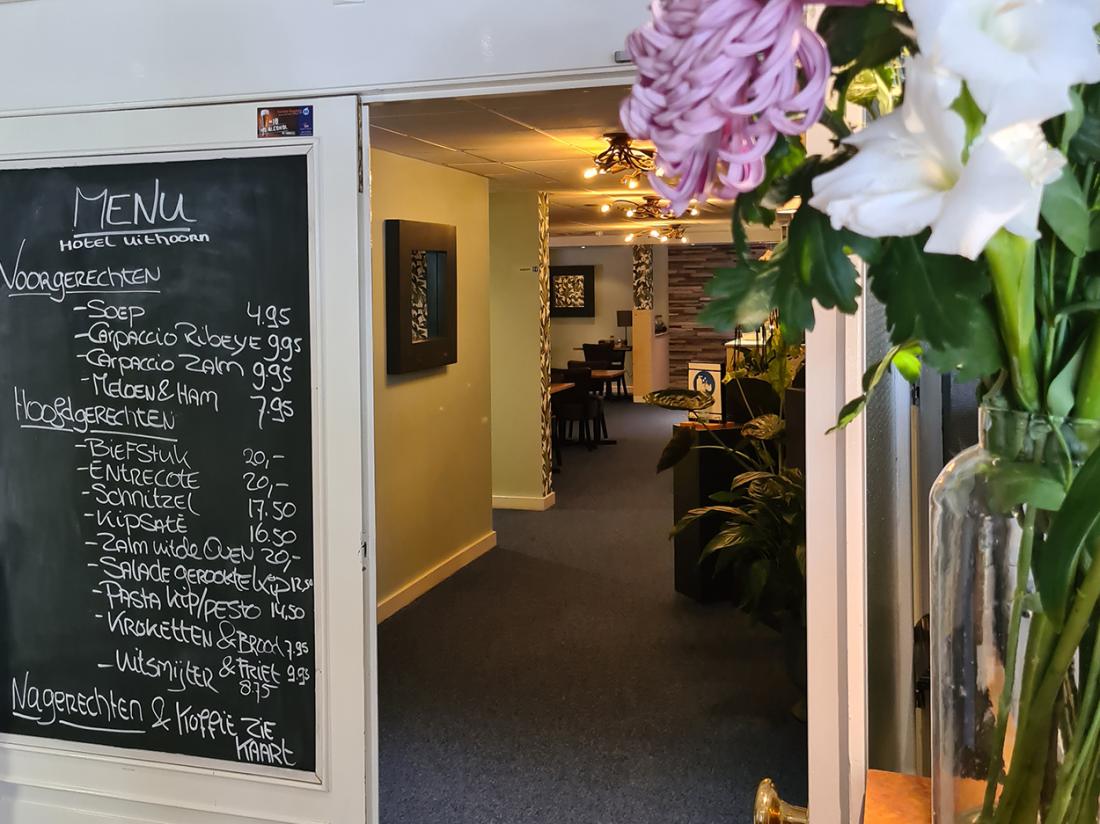 MENU
HOTEL UITHOORN
VOORGERECHTEN
-SOEP 4.95
-CARPACCIO RIBEYE 9.95
-CARPACCIO ZALM 9.95
-MELOEN & HAM 7.95
HOOFDGERECHTEN
-BIEFSTUK 20,-
-ENTRECOTE 20,-
-SCHNITZEL 17.50
-KIPSATE 16.50
-ZALM UIT DE OVEN 20,-
-SALADE GEROOKTE KIP 12.50
-PASTA KIP/PESTO 14,50
-KROKETTEN & BROOD 7.95
-UITSMIJTER & FRIET 9.95
8.75
NAGERECHTEN & KOFFIE ZIE
KAART